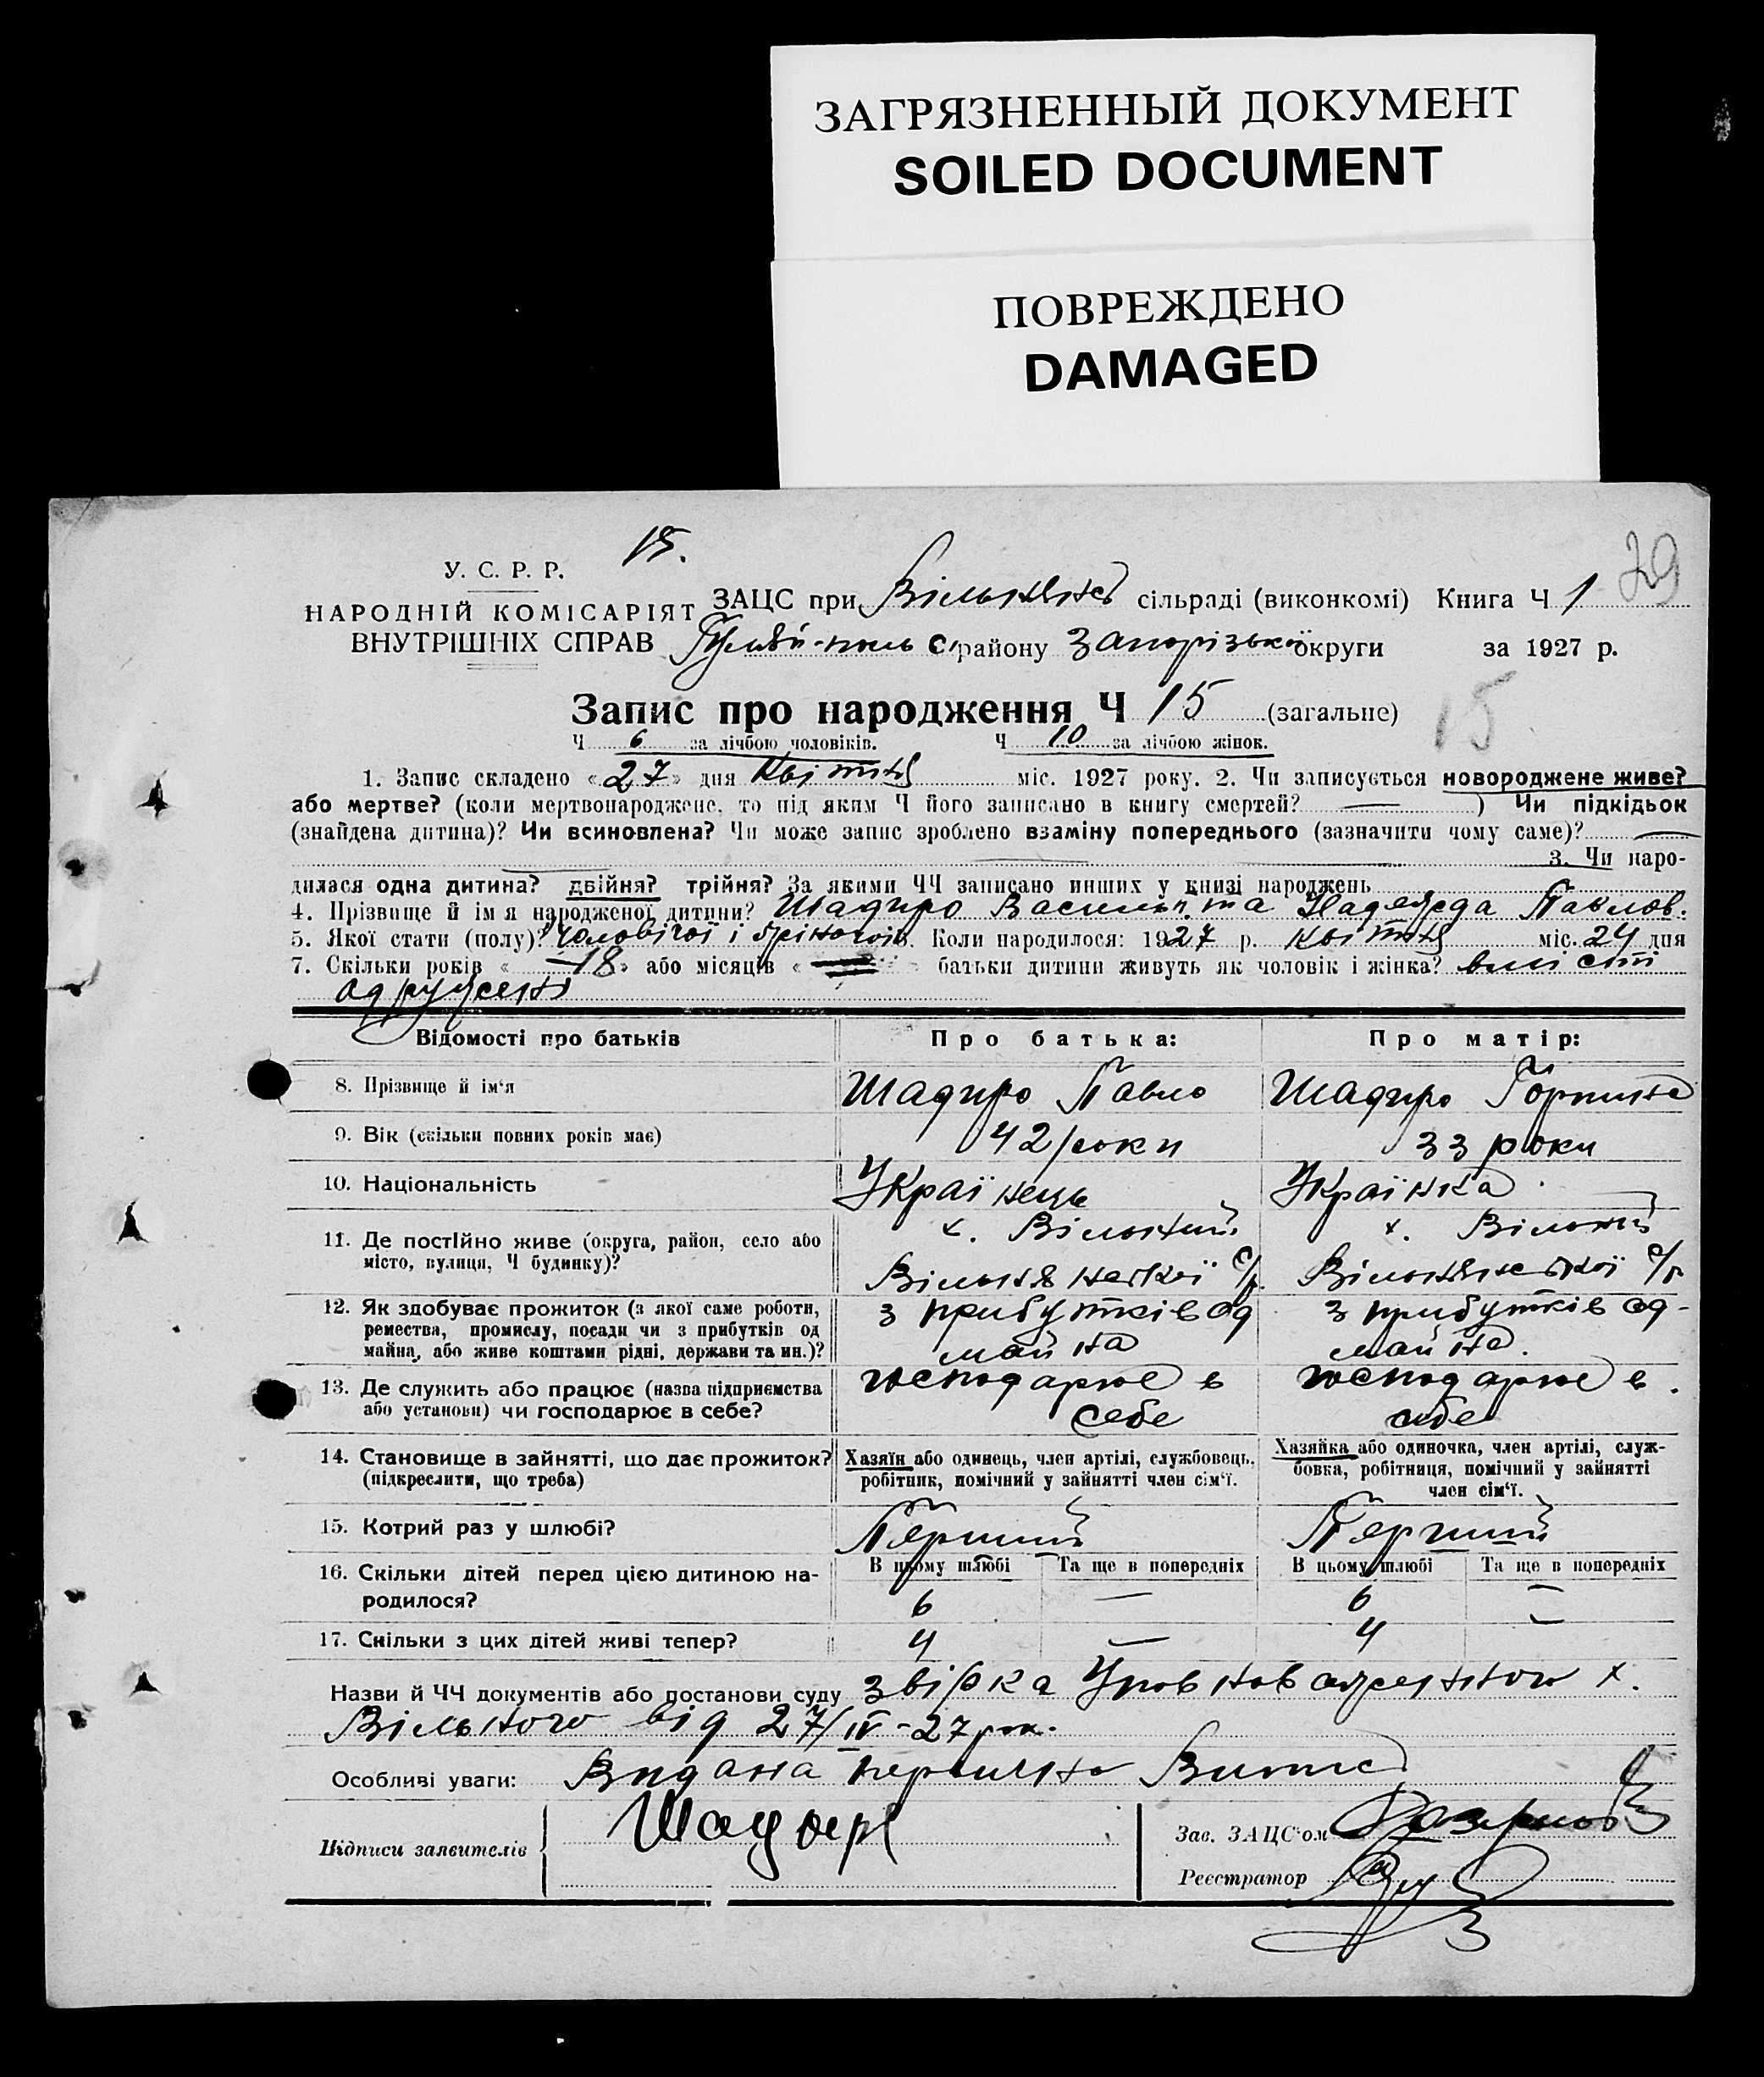 ЗАГРЯЗНЕННЫЙ ДОКУМЕНТ
SOILED DOCUMENT
ПОВРЕЖДЕНО
DAMAGED
15.
29
У. С. Р. Р.
НАРОДНІЙ КОМІСАРІЯТ
ВНУТРІШНІХ СПРАВ
ЗАЦС при сільраді (виконкомі) Книга Ч 1
району Запорізької округи за 1927 р.
Запис про народження Ч 15 (загальне)
15.
Ч 6 за лічбою чоловіків. Ч 10 за лічбою жінок.
1. Запис складено «27» дня квітня міс. 1927 року. 2. Чи записується новороджене живе?
або мертве? (коли мертвонароджене, то під яким Ч його записано в книгу смертей? — ) Чи підкідьок
(знайдена дитина)? Чи всиновлена? Чи може запис зроблено взаміну попереднього (зазначити чому саме)? —
3. Чи наро-
дилася одна дитина? двійня? трійня? За якими ЧЧ записано инших у книзі народжень
4. Прізвище й ім я народженої дитини? Шадиро Василь та Надежда Павлов.
5. Якої стати (полу)? чоловічої і жіночої. Коли народилося: 1927 р. квітня міс. 24 дня
7. Скільки років «18» або місяців « » батьки дитини живуть як чоловік і жінка? вмісті
одружені
Відомості про батьків Про батька: Про матір:
8. Прізвище й ім‘я Шадиро Павло Шадиро Горпина
9. Вік (скільки повних років має) 42 роки 33 роки
10. Національність Українець Українка
11. Де постІйно живе (округа, район, село або
місто, вулиця, Ч будинку)?
х. Вільний
Вільнянської с/р.
х. Вільний
Вільнянської с/р
12. Як здобуває прожиток (з якої саме роботи,
ремества, промислу, посади чи з прибутків од
майна, або живе коштами рідні, держави та ин.)?
з прибутків од
майна
з прибутків од-
майна.
13. Де служить або працює (назва підприємства
або установи) чи господарює в себе?
господарює в
себе
господарює в
себе
14. Становище в зайнятті, що дає прожиток?
(підкреслити, що треба)
Хазяїн або одинець, член артілі, службовець,
робітник, помічний у зайнятті член сім‘ї.
Хазяйка або одиночка, член артілі, служ-
бовка, робітниця, помічний у зайнятті
член сім‘ї.
15. Котрий раз у шлюбі? Перший Перший
16. Скільки дітей перед цією дитиною на-
родилося?
В цьому шлюбі Та ще в попередніх В цьому шлюбі Та ще в попередніх
6 — 6 —
17. Скільки з цих дітей живі тепер? 4 — 4 —
Назви й ЧЧ документів або постанови суду звірка Уповноваженого х.
Вільного від 27/IV-27 рок.
Особливі уваги: Видана первична
Підписи заявителів
Зав. ЗАЦС‘ом
Реєстратор